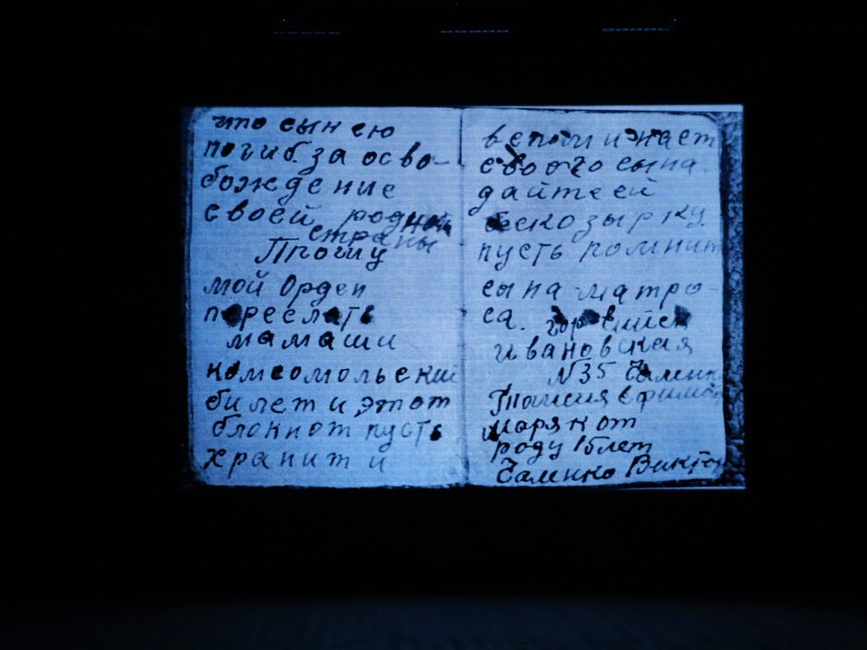 что сын ею
погиб за осво-
бождение
своей родной
страны
Прошу
мой Орден
переслать
мамаши
комсомольский
билет и этот
блокнот пусть
хранит и
вспоминает
своего сына.
дайте ей
бескозырку
пусть помнит
сына матро-
са. гор Ейск
ивановская
N35 Чаленко
Таисия Ефимов
моряк от
роду 15 лет
Чаленко Виктор